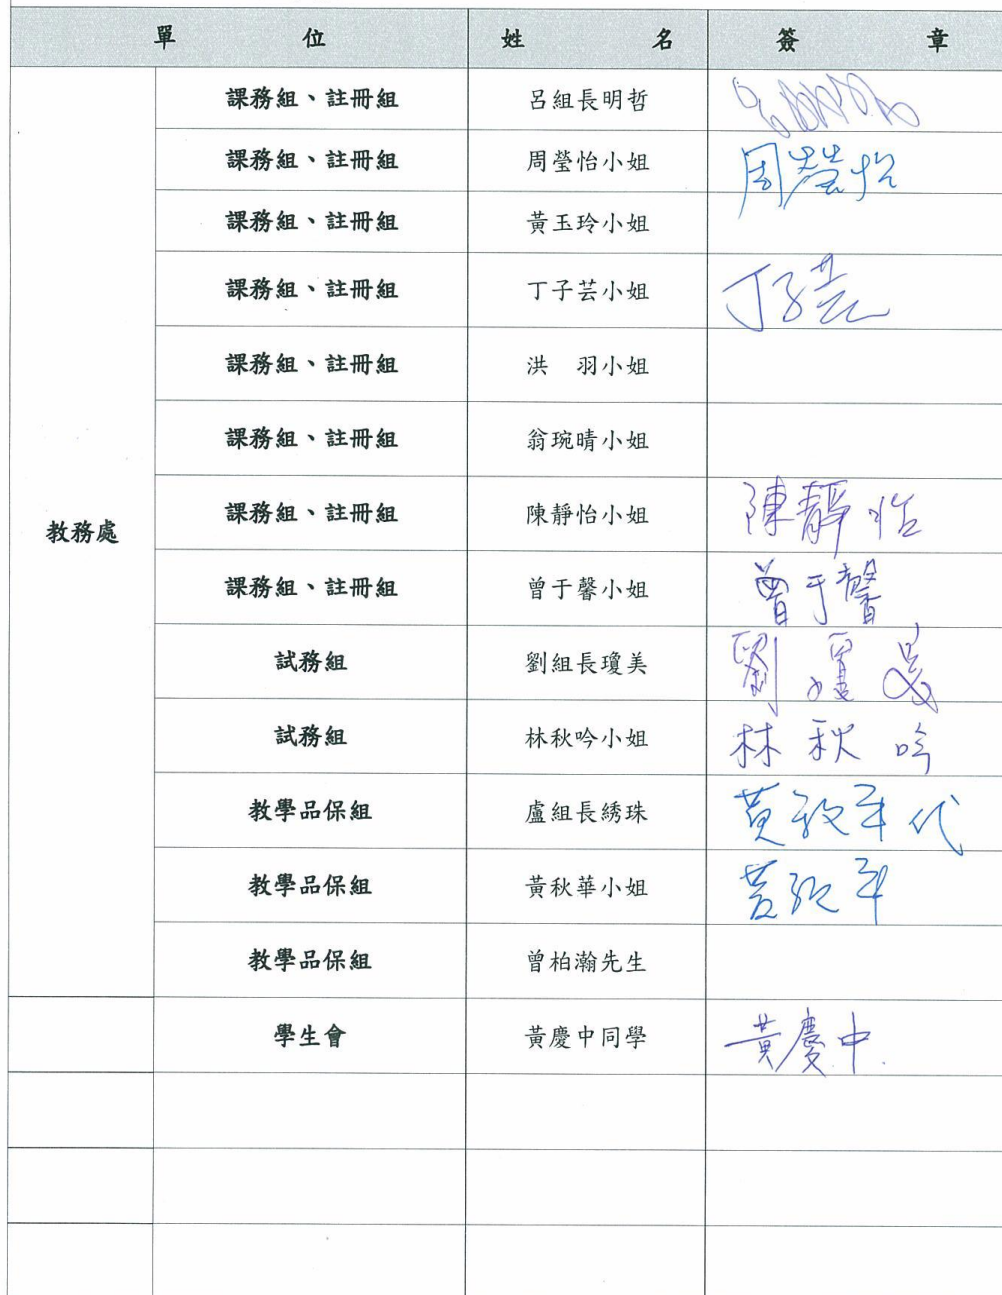 單 位 姓 名 簽 章
教務處
課務組、註冊組 呂組長明哲
課務組、註冊組 周瑩怡小姐 周瑩怡
課務組、註冊組 黃玉玲小姐
課務組、註冊組 丁子芸小姐 丁子芸
課務組、註冊組 洪 羽小姐
課務組、註冊組 翁琬晴小姐
課務組、註冊組 陳靜怡小姐 陳靜怡
課務組、註冊組 曾于馨小姐 曾于馨
試務組 劉組長瓊美 劉瓊美
試務組 林秋吟小姐 林秋吟
教學品保組 盧組長綉珠 黃秋華代
教學品保組 黃秋華小姐 黃秋華
教學品保組 曾柏瀚先生
學生會 黃慶中同學 黃慶中